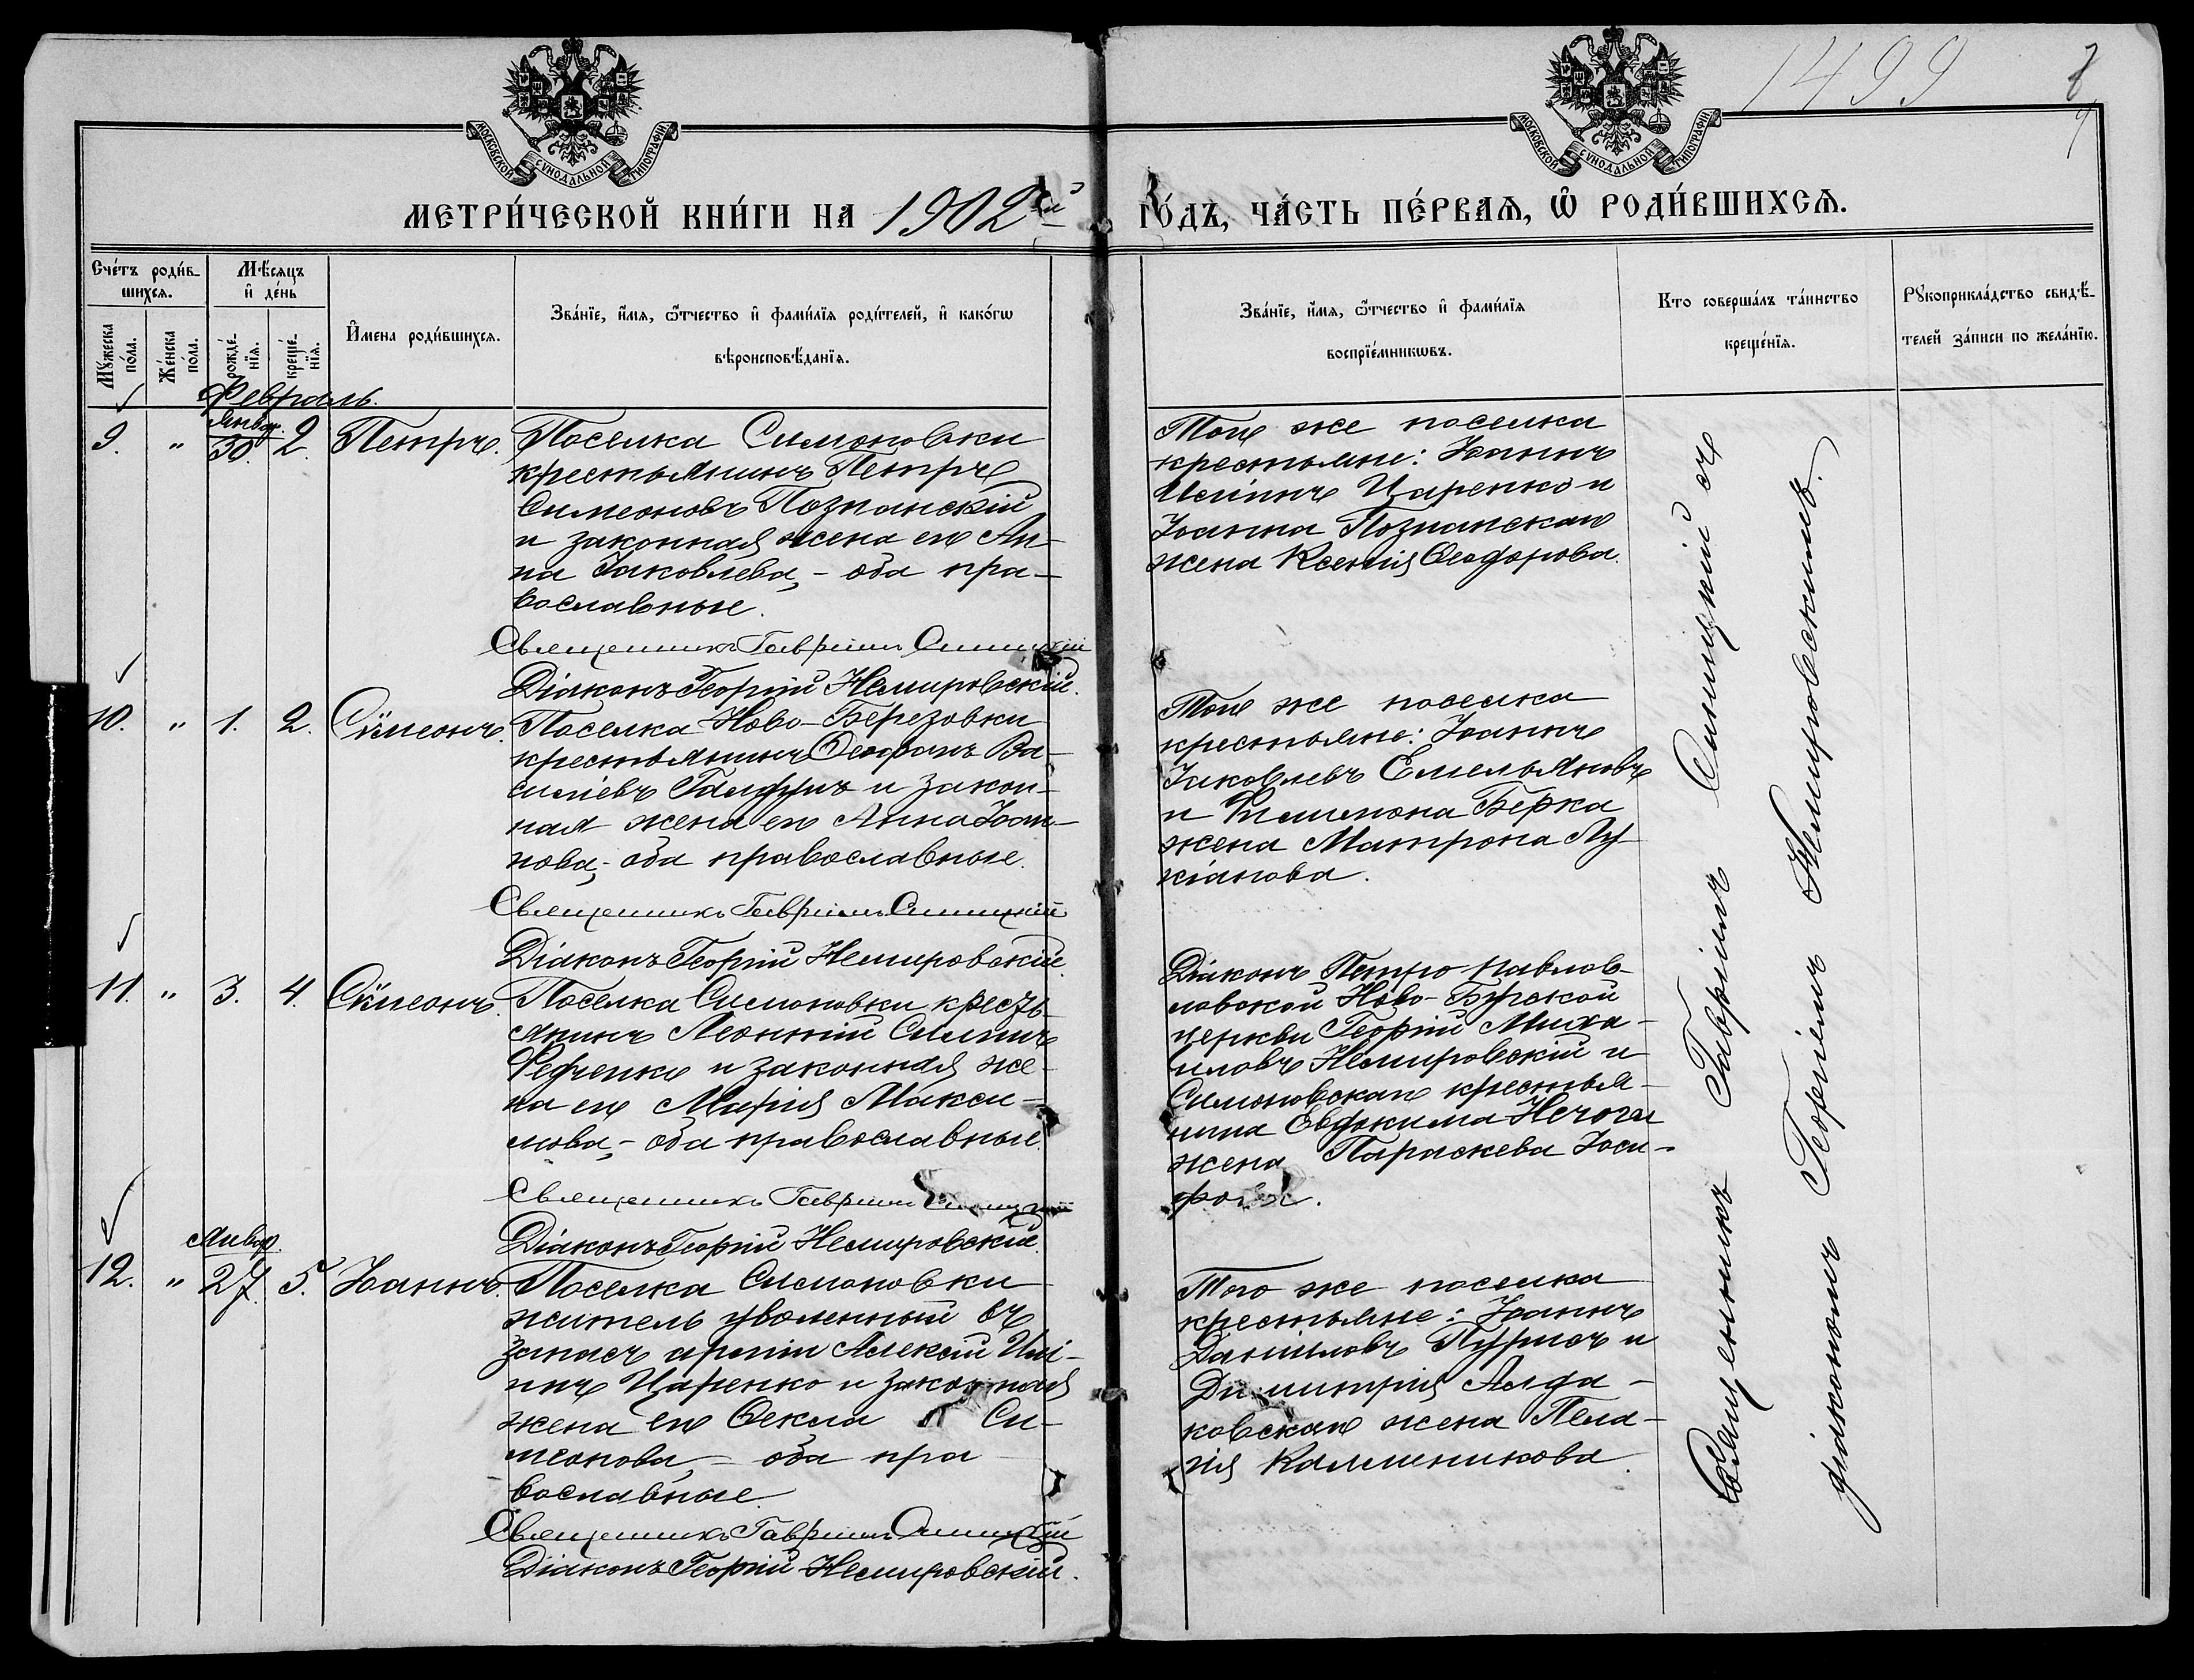 1499
МОСКОВСКОЙ СУНОДАЛЬНОЙ ТИПОГРАФІИ
МОСКОВСКОЙ СУНОДАЛЬНОЙ ТИПОГРАФІИ
МЕТРИ́ЧЕСКОЙ КНИ́ГИ НА 1902й ГО́ДЪ, ЧА́СТЬ ПЕ́РВАѦ, Ѡ РОДИ́ВШИХСѦ.
Счéтъ роди́в-
шихсѧ.
Мꙋ́жеска по́ла.
Же́нска по́ла.
Мѣ́сѧцъ и де́нь
рожде́-нїѧ.
креще́-нїѧ.
И҆мена роди́вшихсѧ.
Зва́нїе, и҆́мѧ, ѻ҆́тчество и҆ фами́лїѧ роди́телей, и҆ како́гѡ
вѣроисповѣ́данїѧ.
Зва́нїе, и҆́мѧ, ѻ҆́тчество и҆ фами́лїѧ
воспрїе́мникѡвъ.
Кто соверша́лъ та́инство
креще́нїѧ.
Рꙋкоприкла́дство свидѣ́-
телей за́писи по жела́нїю.
Февраль.
9. " Январ. 30. 2. Петръ.
Поселка Симоновки
крестьянинъ Петръ
Симеоновъ Познанскій
и законная жена его Ан-
на Іаковлева, - оба пра-
вославные.
Священникъ Гавріилъ Синицкій
Діаконъ Георгій Немировскій.
Того же поселка
крестьяне: Іоаннъ
Исаіинъ Царенко и
Іоанна Познанскаго
жена Ксенія Ѳеодорова.
10. " 1. 2. Сѵмеонъ.
Поселка Ново-Березовки
крестьянинъ Ѳеофанъ Ва-
силіевъ и закон-
ная жена его Анна Іоан-
нова, - оба православные.
Священникъ Гавріилъ Синицкій
Діаконъ Георгій Немировскій.
Того же поселка
крестьяне: Іоаннъ
Іаковлевъ Емельяновъ
и Филимона Берка
жена Матрона Лу-
кіанова.
11. " 3. 4. Сѵмеонъ.
Поселка Симоновки кресть-
янинъ Леонтій
Федченко и законная же-
на его Марія Макси-
мова, - оба православные.
Священникъ Гавріилъ Синицкій
Діаконъ Георгій Немировскій.
Діаконъ Петро-Павлов-
ловской Ново-Бугской
церкви Георгій Миха-
иловъ Немировскій и
Симоновскаго крестья-
нина Евдокима Нечога
жена Параскева Іоси-
фова.
12. " Январ. 27. 5. Іоаннъ.
Поселка Симоновки
житель уволенный въ
запасъ арміи Алексій
Царенко и законная
жена его Ѳекла Си-
меонова, - оба пра-
вославные.
Священникъ Гавріилъ Синицкій
Діаконъ Георгій Немировскій.
Того же поселка
крестьяне: Іоаннъ
Даніиловъ и
Димитрія Алда-
ковскаго жена Пела-
гія Каллиникова.
Священникъ Гавріилъ Синицкій съ
діакономъ Георгіемъ Немировскимъ.